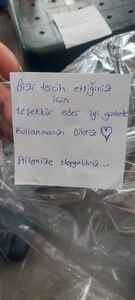 Bizi tercih ettiğiniz
için
teşekkür eder iyi günlerde
Kullanmanızı dileriz ♡
Ailemize Hoşgeldiniz...